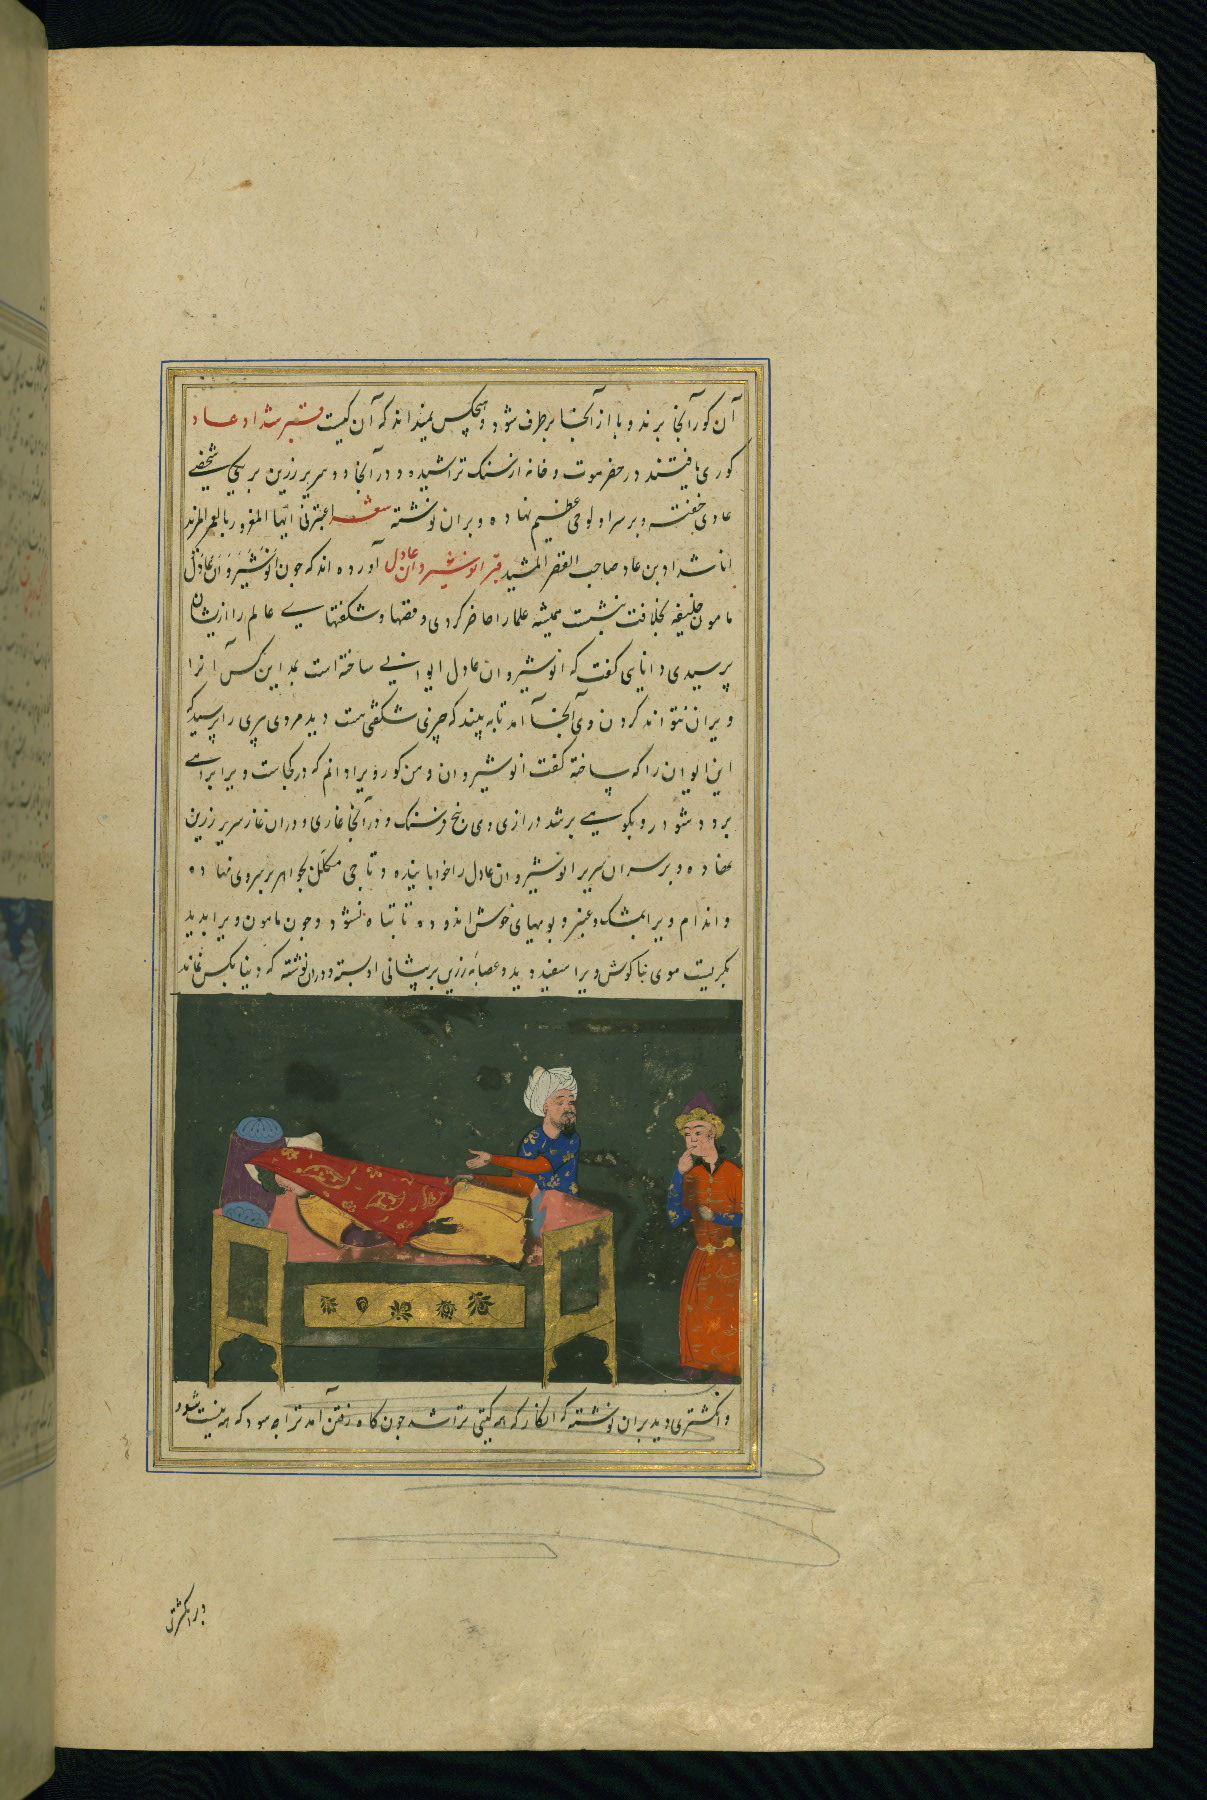 آن کور آنجا برند و با از آنجا برطرف شود و هیچکس نمیداند که آن کیست قبر شداد عاد
کوری یافتند در حضرموت و خانه از سنک تراشیده و در آنجا دو سریر زرین بر یکی شخصی
عادی خفته و بر سر او لوحی عظیم نهاده و بران نوشته شعر اعتبرنی ایها المغرور بالعمر المزید
انا شداد بن عاد صاحب القصر المشید قبر انوشیروان عادل آورده اند که چون انوشیروان عادل
مامون خلیفه بخلافت نشست همیشه علما را حاضر کردی و قصها و شکفتهایی عالم را از یشان
پرسیدی دانایی کفت که انوشیروان عادل ایوانیی ساخته است بمداین کس آنرا
ویران نتواند کردن وی آنجا آمد تا به بیند که چیزی شکفتی هست دید مردی پیری را پرسید که
این ایوان را که ساخته کفت انوشیروان و من کور ویرا دانم که در کجاست ویرا براهی
برد دشوار و بکوهی بر شد درازی وی پنج فرسنک و در آنجا غاری و دران غار سریر زرین
نهاده و بر سر ان سریر انوشیروان عادل را خوابانیده و تاجی مکلل بجواهر بر سر وی نهاده
و اندام ویرا بمشک و عنبر و بویهای خوش اندوده تا تباه نشود و چون مامون ویرا بدید
بکریست موی بناکوش ویرا سفید دید و عصابه زرین بر پیشانی او بسته و دران نوشته که دنیا بکس نماند
و انکشتری دید بران نوشته که انکار که همه کیتی تراشد چون کاه رفتن آمد ترا چه سود که همه نیست شود
در انکشتری